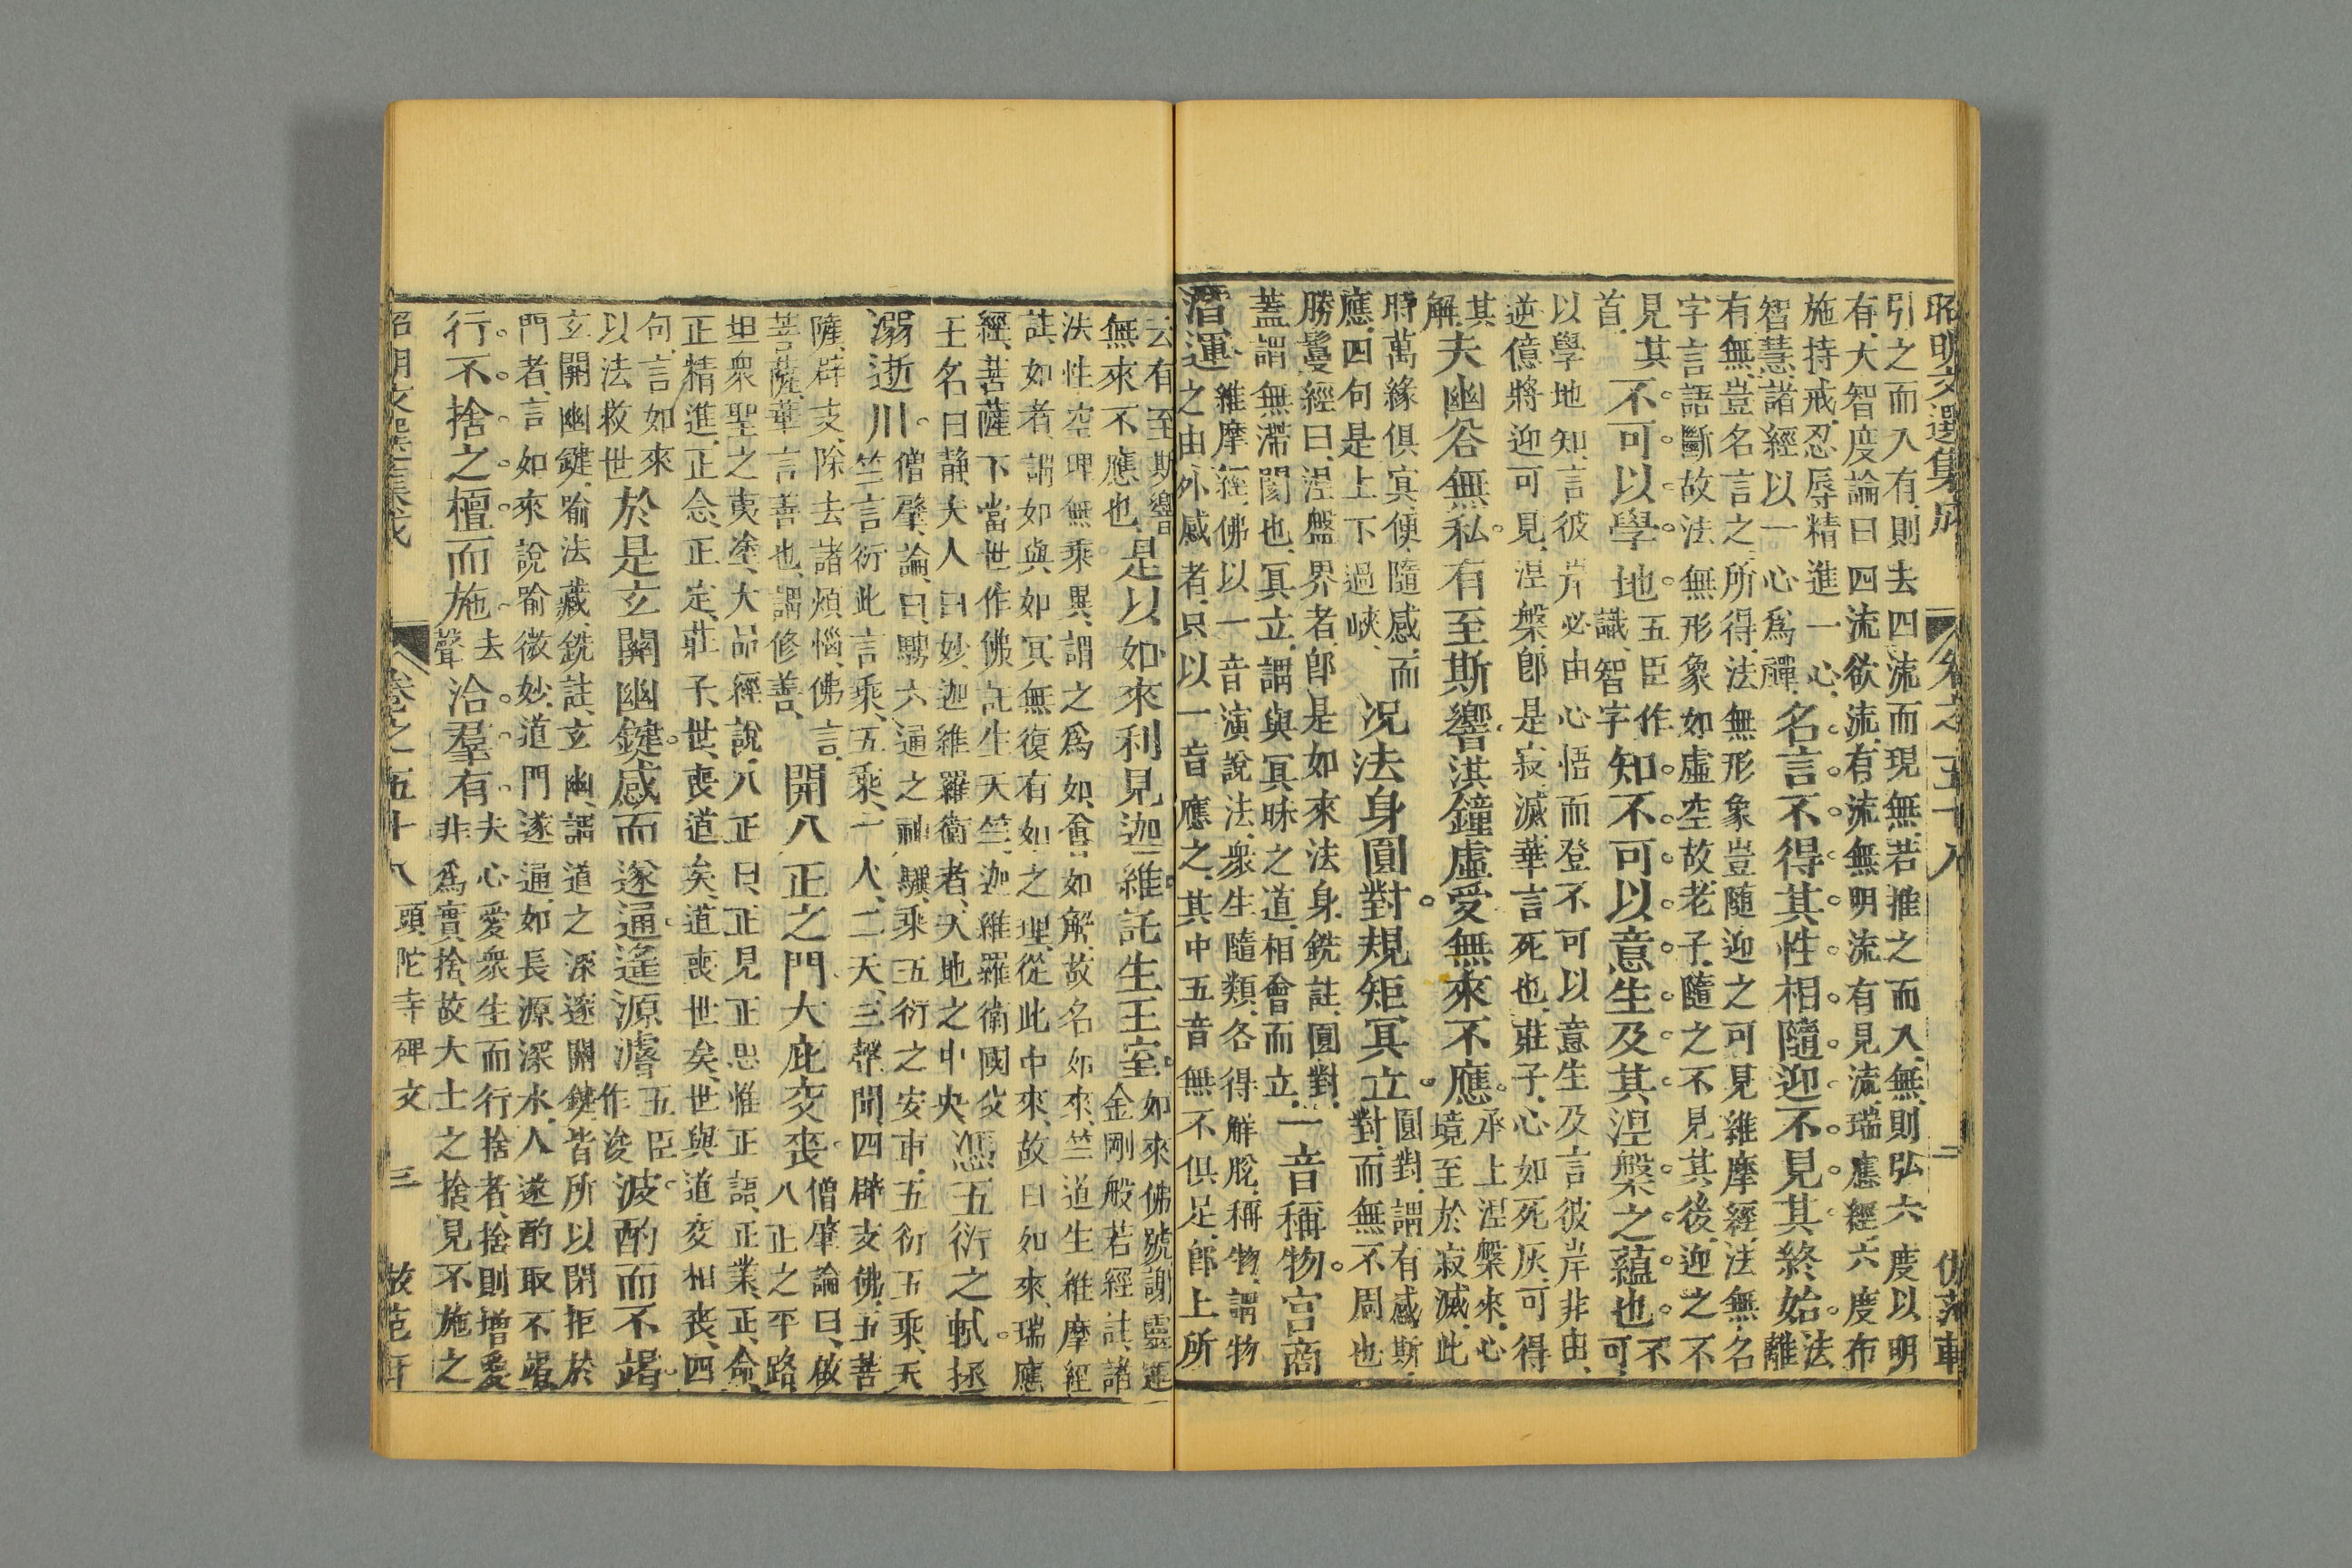 昭明文選集成　卷之五十八　二
引之而入有則去四流而現無若推之而入無則弘六度以明
有大智度論曰四流欲流有流無明流有見流瑞應經六度布
施持戒忍辱精進一心
智慧諸經以一心爲禪
名言不得其性相隨迎不見其終始
法
離
有無豈名言之所得法無形象豈隨迎之可見維摩經法無名
字言語斷故法無形象如虛空故老子隨之不見其後迎之不
見其
首
不可以學地
五臣作
識智字
知不可以意生及其涅槃之蘊也
不
可
以學地知言彼岸必由心悟而登不可以意生及言彼岸非由
逆億將迎可見涅槃卽是寂滅華言死也莊子心如死灰可得
其
解
夫幽谷無私有至斯響洪鐘虛受無來不應
承上涅槃來心
境至於寂滅此
時萬緣俱寘便隨感而
應四句是上下過峽
况法身圓對規矩冥立
圓對謂有感斯
對而無不周也
勝鬘經曰涅盤界者卽是如來法身銑註圓對
蓋謂無滯閡也冥立謂與冥昧之道相會而立
一音稱物宮商
潛運
維摩經佛以一音演說法衆生隨類各得解脫稱物謂物
之由外感者只以一音應之其中五音無不俱足卽上所
云有至斯響
無來不應也
是以如來利見迦維託生王室
如來佛號謝靈運
金剛般若經註諸
法性空理無乘異謂之爲如會如解故名如來竺道生維摩經
註如者謂如與如冥無復有如之理從此中來故曰如來瑞應
經菩薩下當世作佛託生天竺迦維羅衛國父
王名曰静夫人曰妙迦維羅衛者天地之中央
憑五衍之軾拯
溺逝川
僧肇論曰騁六通之神驥乘五衍之安車五衍五乘天
竺言衍此言乘五乘一人二天三聲聞四辟支佛五菩
薩辟支除去諸煩惱佛言
菩薩華言善也謂修善
開八正之門大庇交喪
僧肇論曰啟
八正之平路
坦衆聖之夷塗大品經說八正曰正見正思惟正語正業正命
正精進正念正定莊子世喪道矣道喪世矣世與道交相喪四
句言如來
以法救世
於是玄關幽鍵感而遂通遙源濬
五臣
作浚
波酌而不竭
玄開幽鍵喻法藏銑註玄幽謂道之深邃關鍵皆所以閉拒於
門者言如來說喻微妙道門遂通如長源深水人遂酌取不竭
行不捨之檀而施
去
聲
洽羣有
夫心愛衆生而行捨者捨則增愛
非爲實捨故大士之捨見不施之
昭明文選集成　卷之五十八　頭陀寺碑文　三